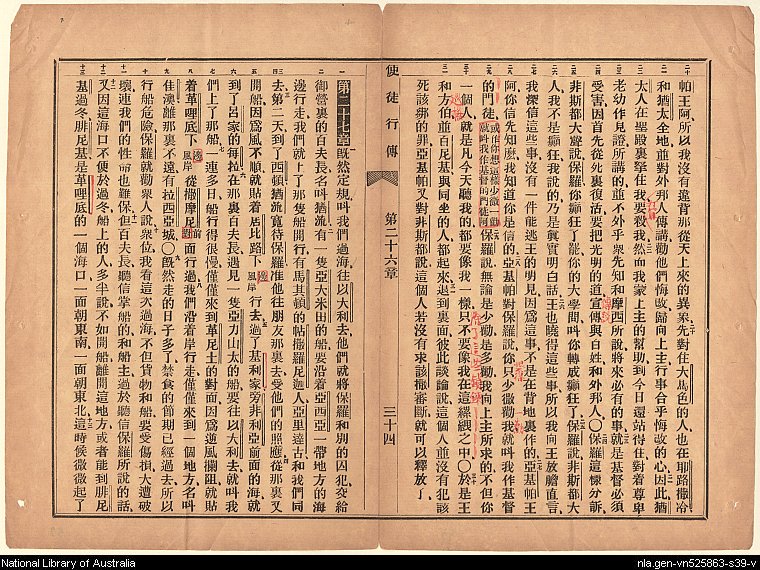 帕王阿所以我沒有違背那從天上來的異象先對住大馬色的人也在耶路撒冷
和猶太全地並對外邦人傳講勸他們悔改歸向上主行事合乎悔改的心因此猶
太人在聖殿裏拏住我要殺我然而我蒙上主的幫助到今日還站得住對着尊卑
老幼作見證所講的並不外乎衆先知和摩西所說將來必有的事就是基督必須
受害因首先從死裏復活要把光明的道宣傳與百姓和外邦人〇保羅這樣分訴
非斯都大聲說保羅你癲狂了罷你的大學問叫你轉成癲狂了保羅說非斯都大
人我不是癲狂我說的乃是眞實明白話王也曉得這些事所以我向王放膽直言
我深信這些事沒有一件能逃王的明見因爲這事不是在背地裏作的亞基帕王
阿你信先知麽我知道你是信的亞基帕對保羅說你只少微勸我就叫我作基督
的門徒或作你想這樣少微一勸就叫我作基督的門徒阿保羅說無論是少勸是多勸我向上主所求的不但你
一個人就是凡今天聽我的都要像我一樣只不要像我在這縲絏之中〇於是王
和方伯並百尼基與同坐的人都起來退到裏面彼此談論說這個人並沒有犯該
死該綁的罪亞基帕又對非斯都說這個人若沒有求該撒審斷就可以釋放了
使徒行傳 第二十六章 三十四
第二十七章旣然定規叫我們過海往以大利去他們就將保羅和別的囚犯交給
御營裏的百夫長名叫猶流有一隻亞大米田的船要沿着亞西亞一帶地方的海
邊行走我們就上了那隻船開行有馬其頓的帖撒羅尼迦人亞里達古和我們同
去第二天到了西頓猶流寬待保羅准他往朋友那裏去受他們的照應從那裏又
開船因爲風不順就貼着居比路下風岸行去過了基利家旁非利亞前面的海就
到了呂家的每拉在那裏百夫長遇見一隻亞力山太的船要往以大利去就叫我
們上了那船一連多日船行得很慢僅僅來到革尼土的對面因爲逆風攔阻就貼
着革哩底下風岸從撒摩尼對面行過我們沿着岸行走僅僅來到一個地方名叫
佳澳離那裏不遠有拉西亞城〇旣然走的日子多了禁食的節期已經過去所以
行船危險保羅就勸衆人說衆位我看這次過海不但貨物和船要受傷損大遭破
壞連我們的性命也難保但百夫長聽信掌船的和船主過於聽信保羅所說的話
又因這海口不便於過冬船上的人多半說不如開船離開這地方或者能到腓尼
基過冬腓尼基是革哩底的一個海口一面朝東南一面朝東北這時候微微起了
National Library of Australia
nla.gen-vn525863-s39-v